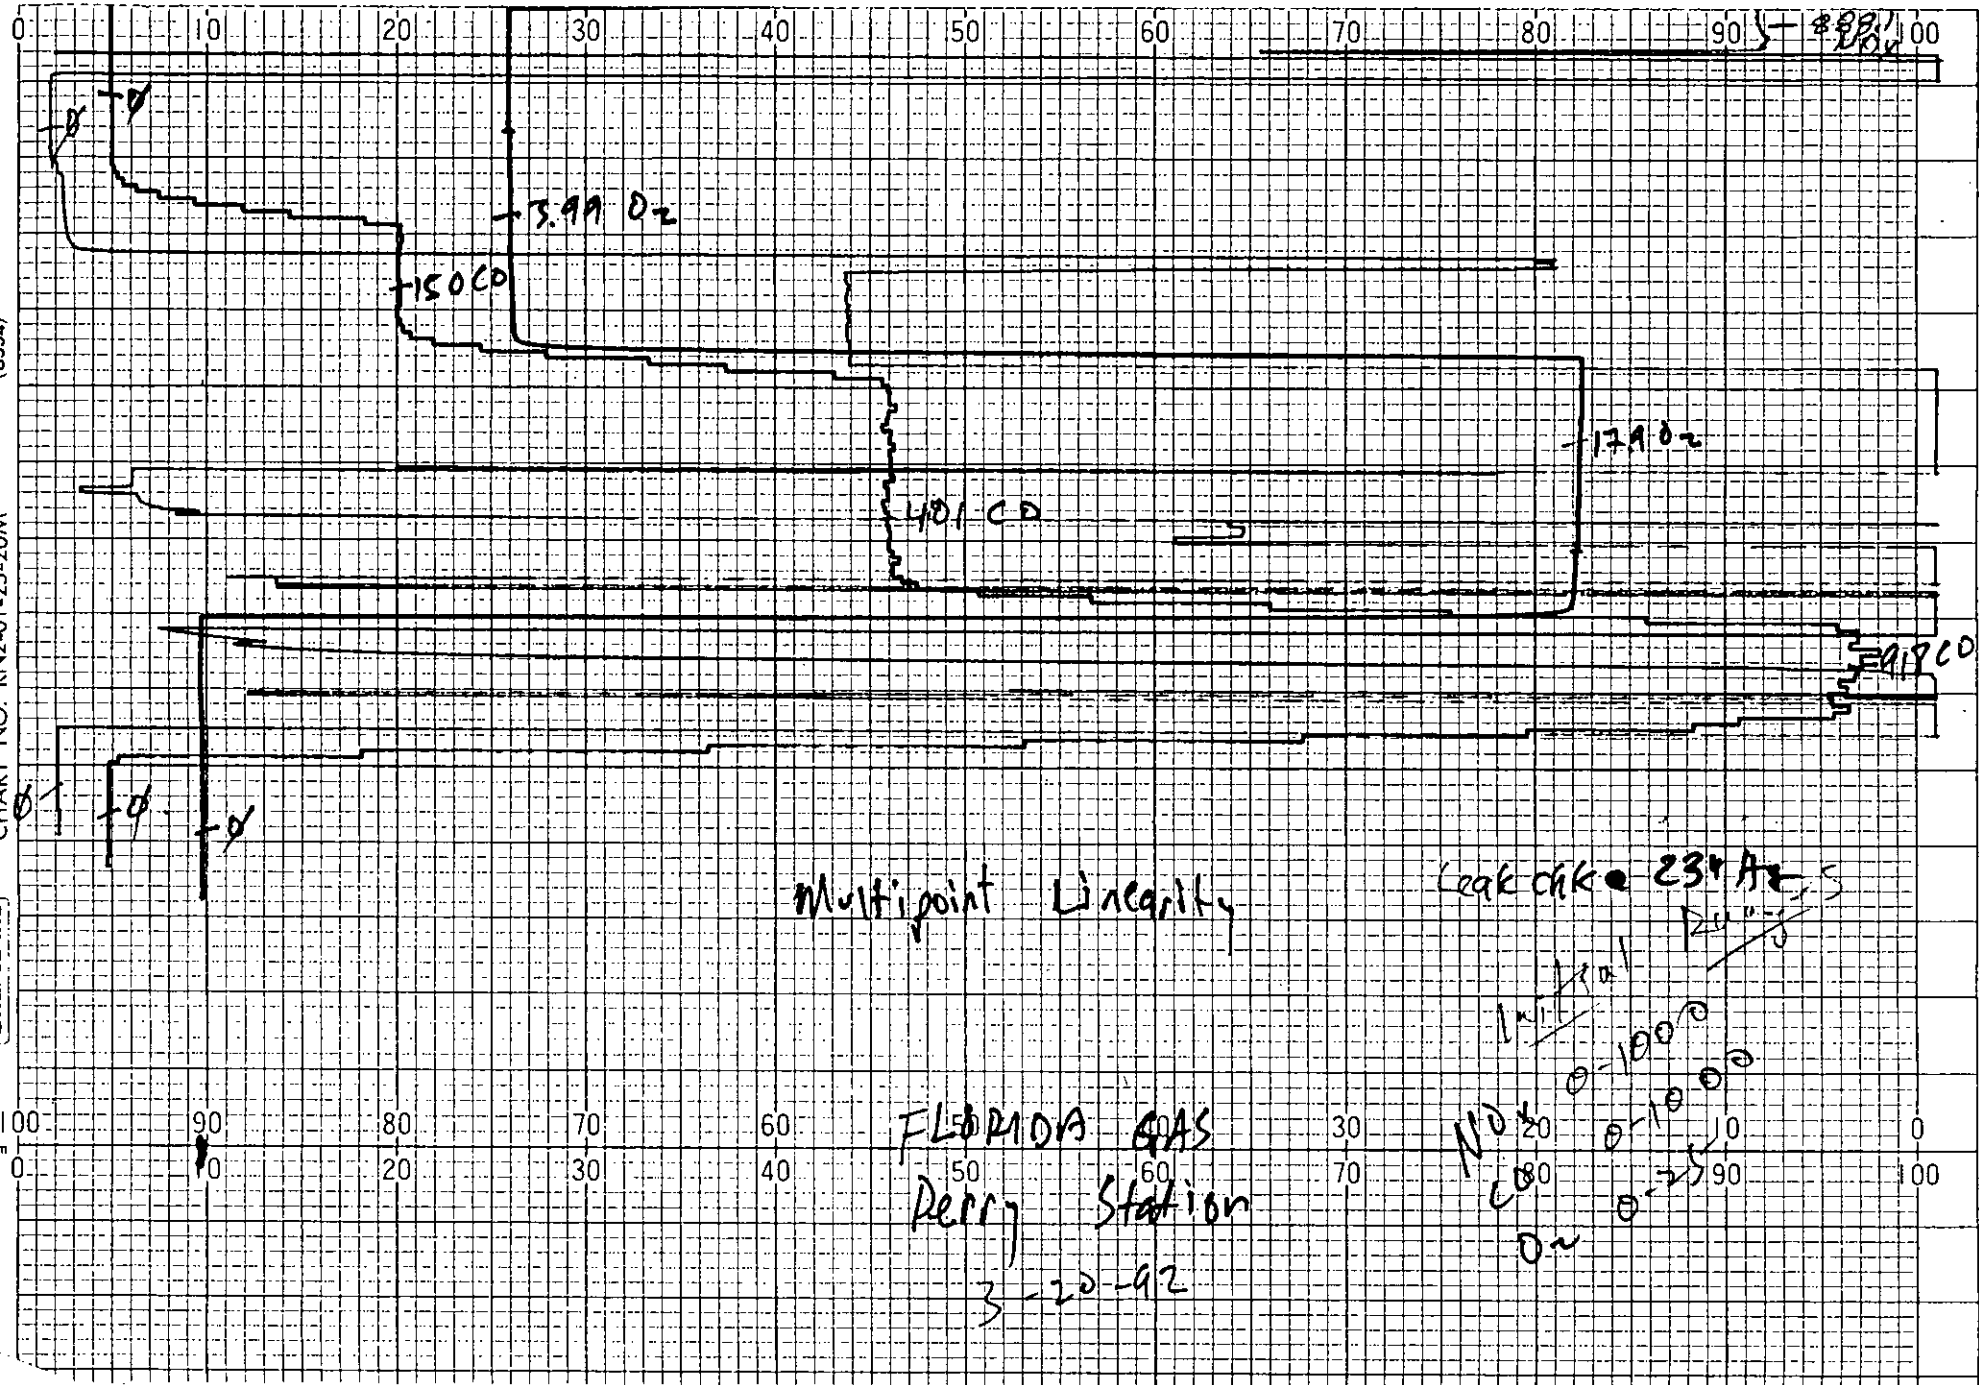 0 10 20 30 40 50 60 70 80 90 100
Ø
Ø
3.99 O2
150 CO
17.9 O2
401 CO
918 CO
Ø
Ø
Ø
Multipoint Linearity
Leak chk
Initial
Ranges
0-1000
0-1000
0-25
NOx
CO
O2
100 90 80 70 60 30 20 10 0
0 10 20 30 40 50 60 70 80 90 100
FLORIDA GAS
Perry Station
3-20-92
CHART NO.